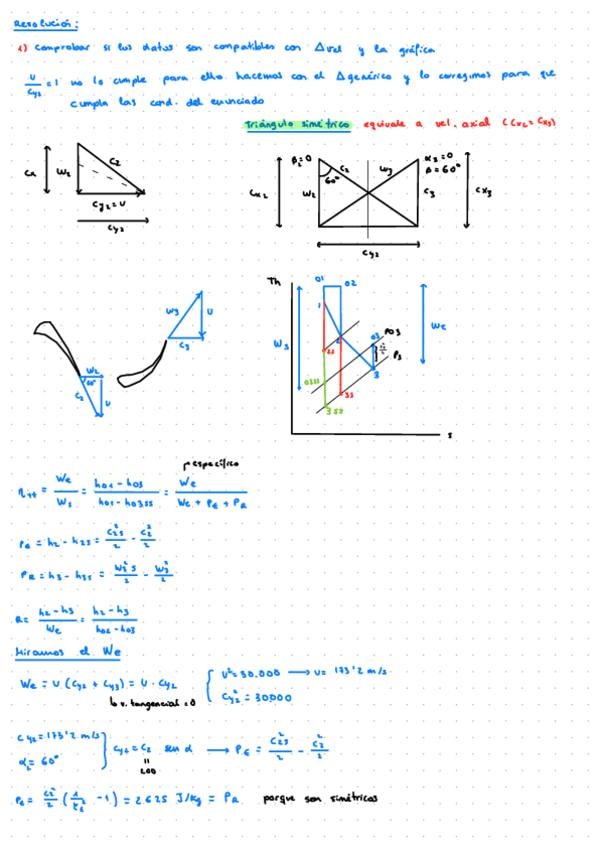 Resolución:
1) Comprobar si los datos son compatibles con Δvel y la gráfica
U/Cy2 = 1 no lo cumple para ello hacemos con el Δgenérico y lo corregimos para que
cumpla las cond. del enunciado
Triángulo simétrico equivale a vel. axial (Cx2 = Cx3)
Cx W2 C2
Cy2 = U
Cy2
β2=0 C2 W3 α3=0
60° β=60°
Cx2 W2 C3 Cx3
Cy2
Th
01 02
1
W3 U
C3
W2
60°
C2 U
Ws We
2s 2 03 P03
03ss P3
3s 3
3ss
s
específico
ηtt = We/Ws = (h01 - h03)/(h01 - h03ss) = We/(We + PE + PR)
PE = h2 - h2s = C2s²/2 - C2²/2
PR = h3 - h3s = W3²s/2 - W3²/2
R = (h2 - h3)/We = (h2 - h3)/(h02 - h03)
Miramos el We
We = U (Cy2 + Cy3) = U · Cy2
U² = 30.000 → U = 173'2 m/s
Cy2² = 30000
v. tangencial = 0
Cy2 = 173'2 m/s
α2 = 60°
Cy2 = C2 sen α → PE = C2s²/2 - C2²/2
200
PE = C2²/2 ( - 1) = 2625 J/kg = PR porque son simétricos